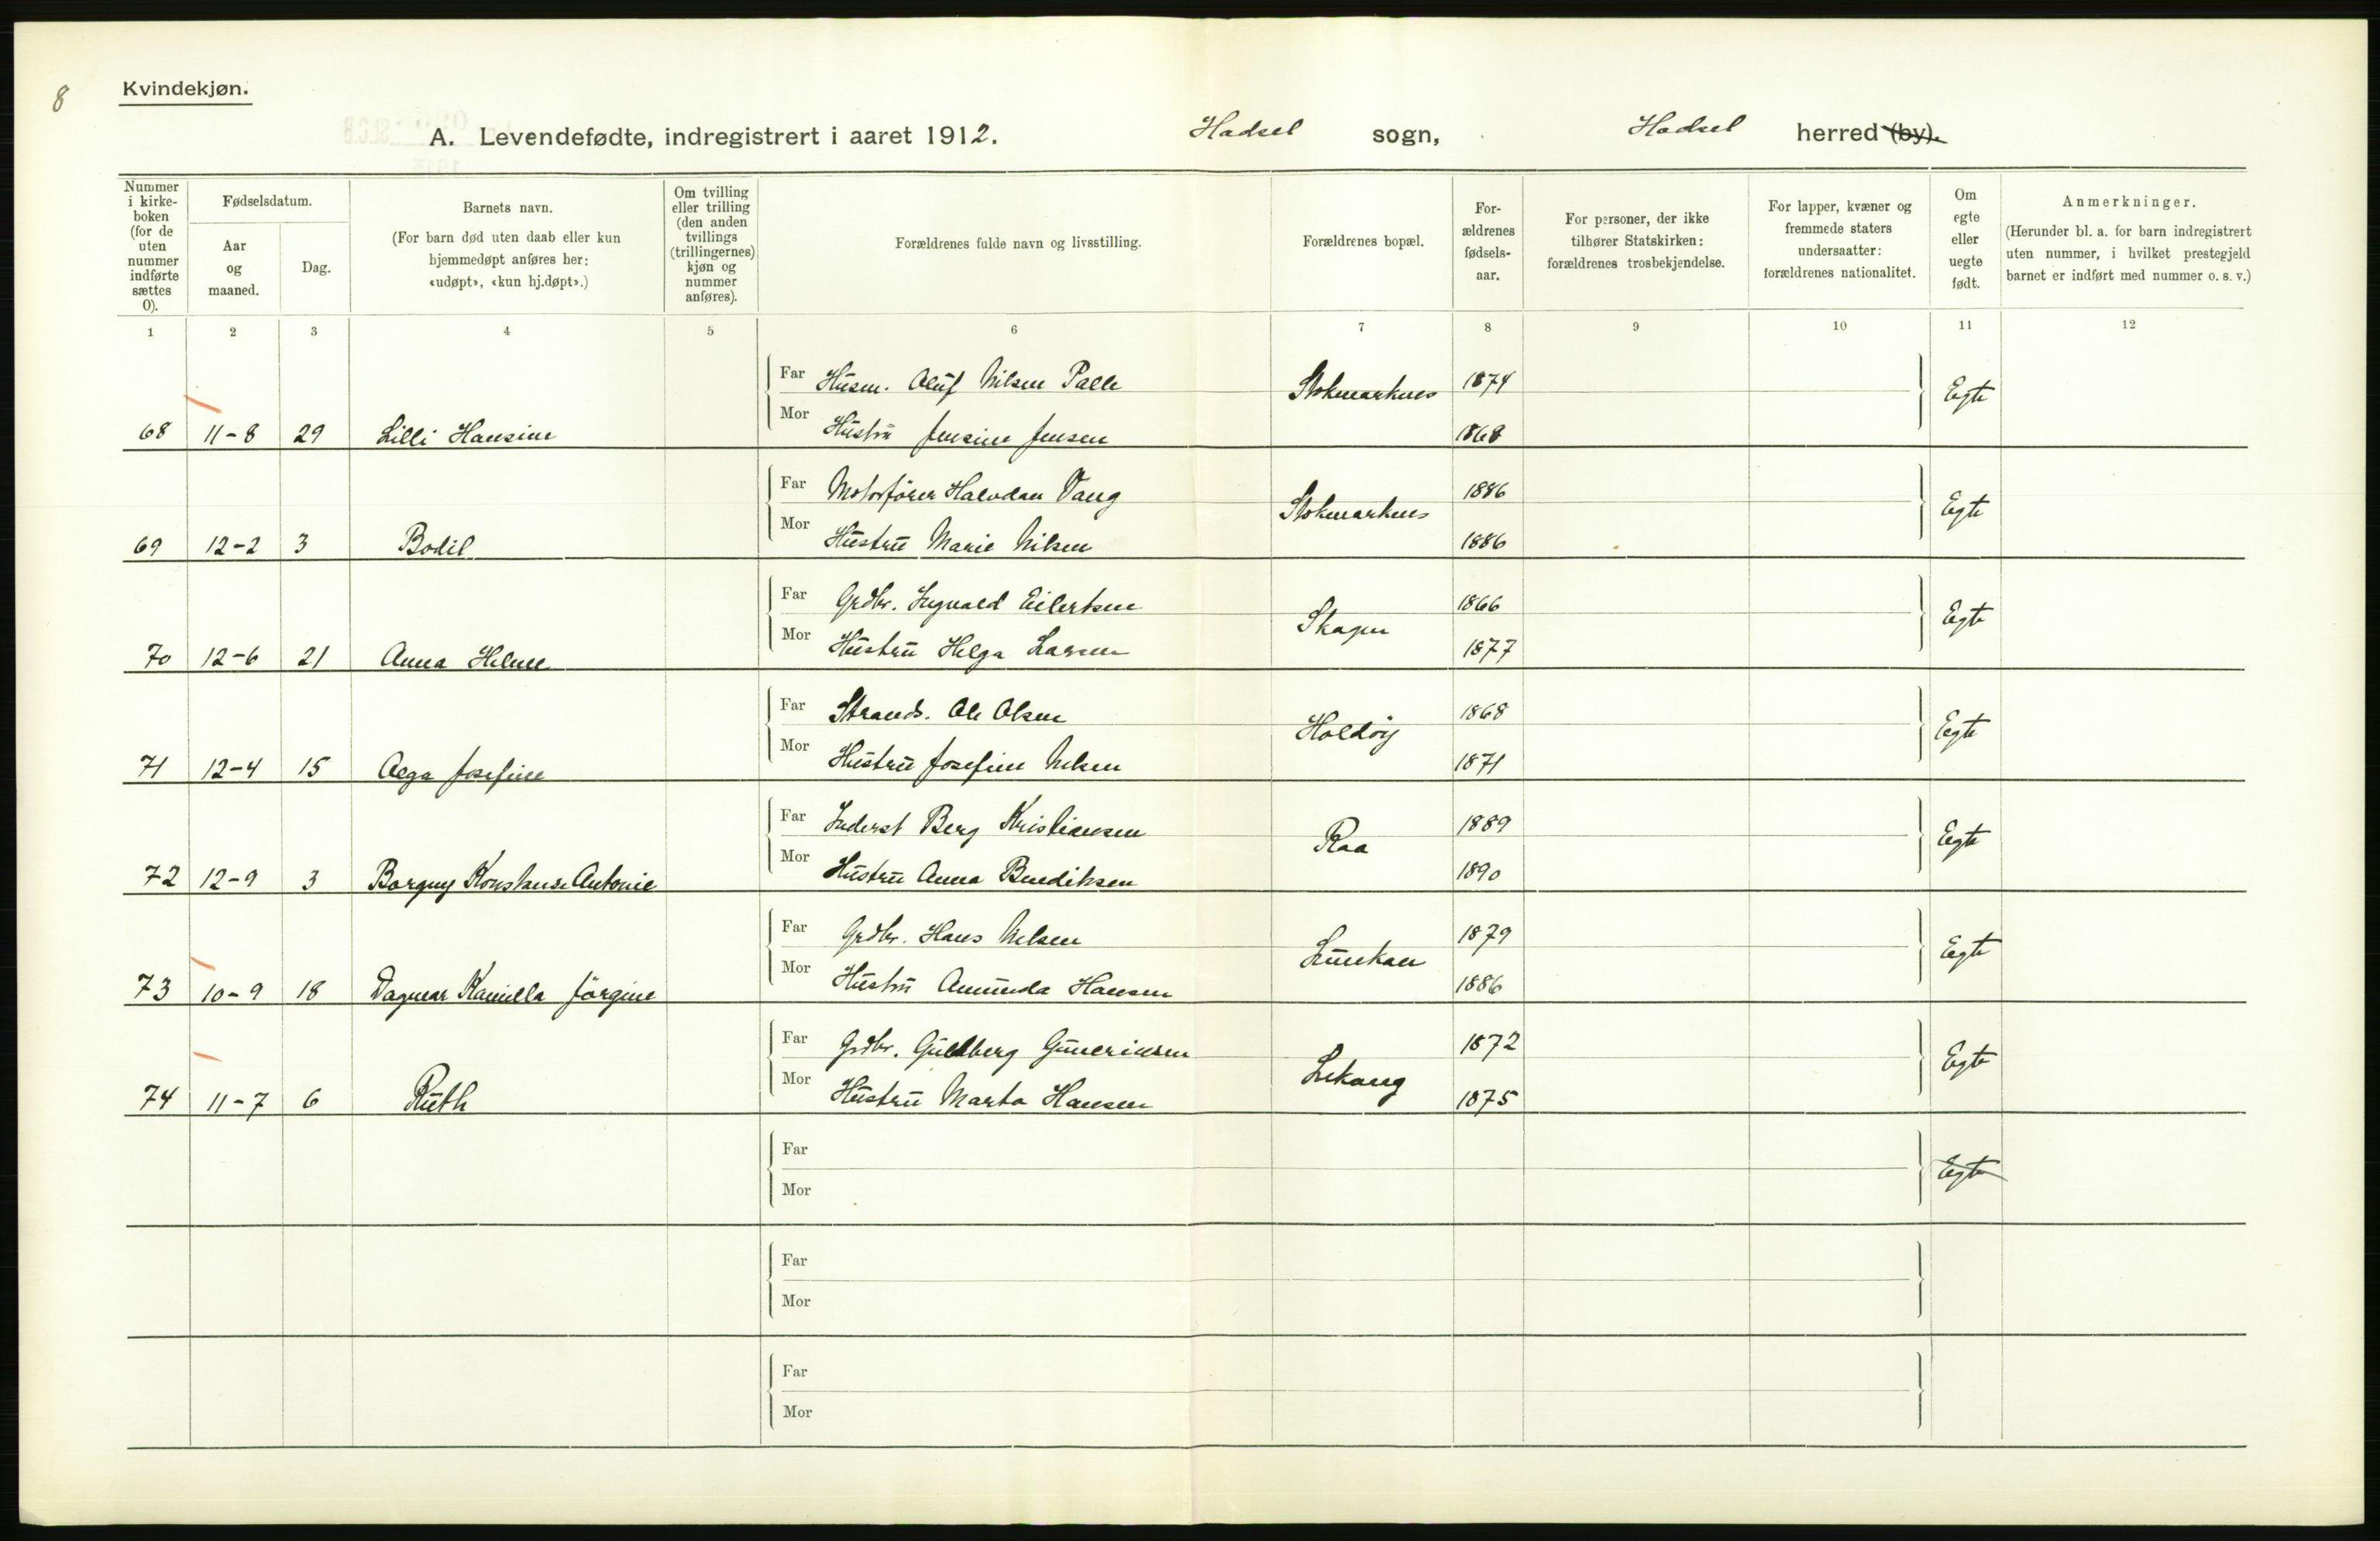 8
Kvindekjøn.
A. Levendefødte, indregistrert i aaret 1912. Hadsel sogn, Hadsel herred (by).
Nummer i kirke-boken (for de uten nummer indførte sættes 0).
Fødselsdatum.
Aar og maaned.
Dag.
Barnets navn.
(For barn død uten daab eller kun hjemmedøpt anføres her: «udøpt», «kun hj.døpt».)
Om tvilling eller trilling (den anden tvillings (trillingernes) kjøn og nummer anføres).
Forældrenes fulde navn og livsstilling.
Forældrenes bopæl.
For-ældrenes fødsels-aar.
For personer, der ikke tilhører Statskirken: forældrenes trosbekjendelse.
For lapper, kvæner og fremmede staters undersaatter: forældrenes nationalitet.
Om egte eller uegte født.
Anmerkninger.
(Herunder bl. a. for barn indregistrert uten nummer, i hvilket prestegjeld barnet er indført med nummer o. s. v.)
1 2 3 4 5 6 7 8 9 10 11 12
Far Husm. Oluf Nilsen Palle Stokmarknes 1874 Egte
68 11-8 29 Lilli Hansine Mor Hustru Jensine Jensen 1868
Far Motorfører Halvdan Vang Stokmarknes 1886 Egte
69 12-2 3 Bodil Mor Hustru Marie Nilsen 1886
Far Grdbr. Ingvald Eilertsen Skagen 1866 Egte
70 12-6 21 Anna Helene Mor Hustru Helga Larsen 1877
Far Strands. Ole Olsen Holdöy 1868 Egte
71 12-4 15 Olga Josefine Mor Hustru Josefine Nilsen 1871
Far Inderst Berg Kristiansen Raa 1889 Egte
72 12-9 3 Borgny Konstanse Antonie Mor Hustru Anna Bendiksen 1890
Far Grdbr. Hans Nilsen Lunkan 1879 Egte
73 10-9 18 Dagmar Kamilla Jörgine Mor Hustru Amunda Hansen 1886
Far Grdbr. Guldberg Guneriusen Lekang 1872 Egte
74 11-7 6 Ruth Mor Hustru Marta Hansen 1875
Far Egte
Mor
Far
Mor
Far
Mor